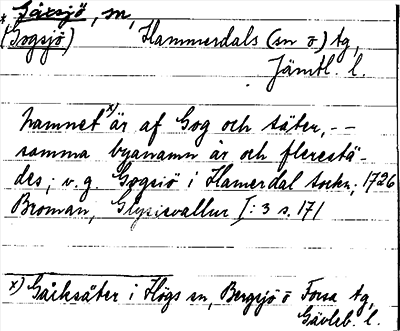 * Gåxsjö, sn,
(Gogsjö) Hammerdals (sn ö) tg,
Jämtl. l.
hamnet x) är af Gog och säter, --
somma byanamn är och flerestä-
des; v. g. Gogsiö i Hamerdal sockn; 1726
Broman, Glysisvallur I: 3 s. 171
x) Gåcksäter i Högs sn, Bergsjö o Forsa tg,
Gävleb. l.